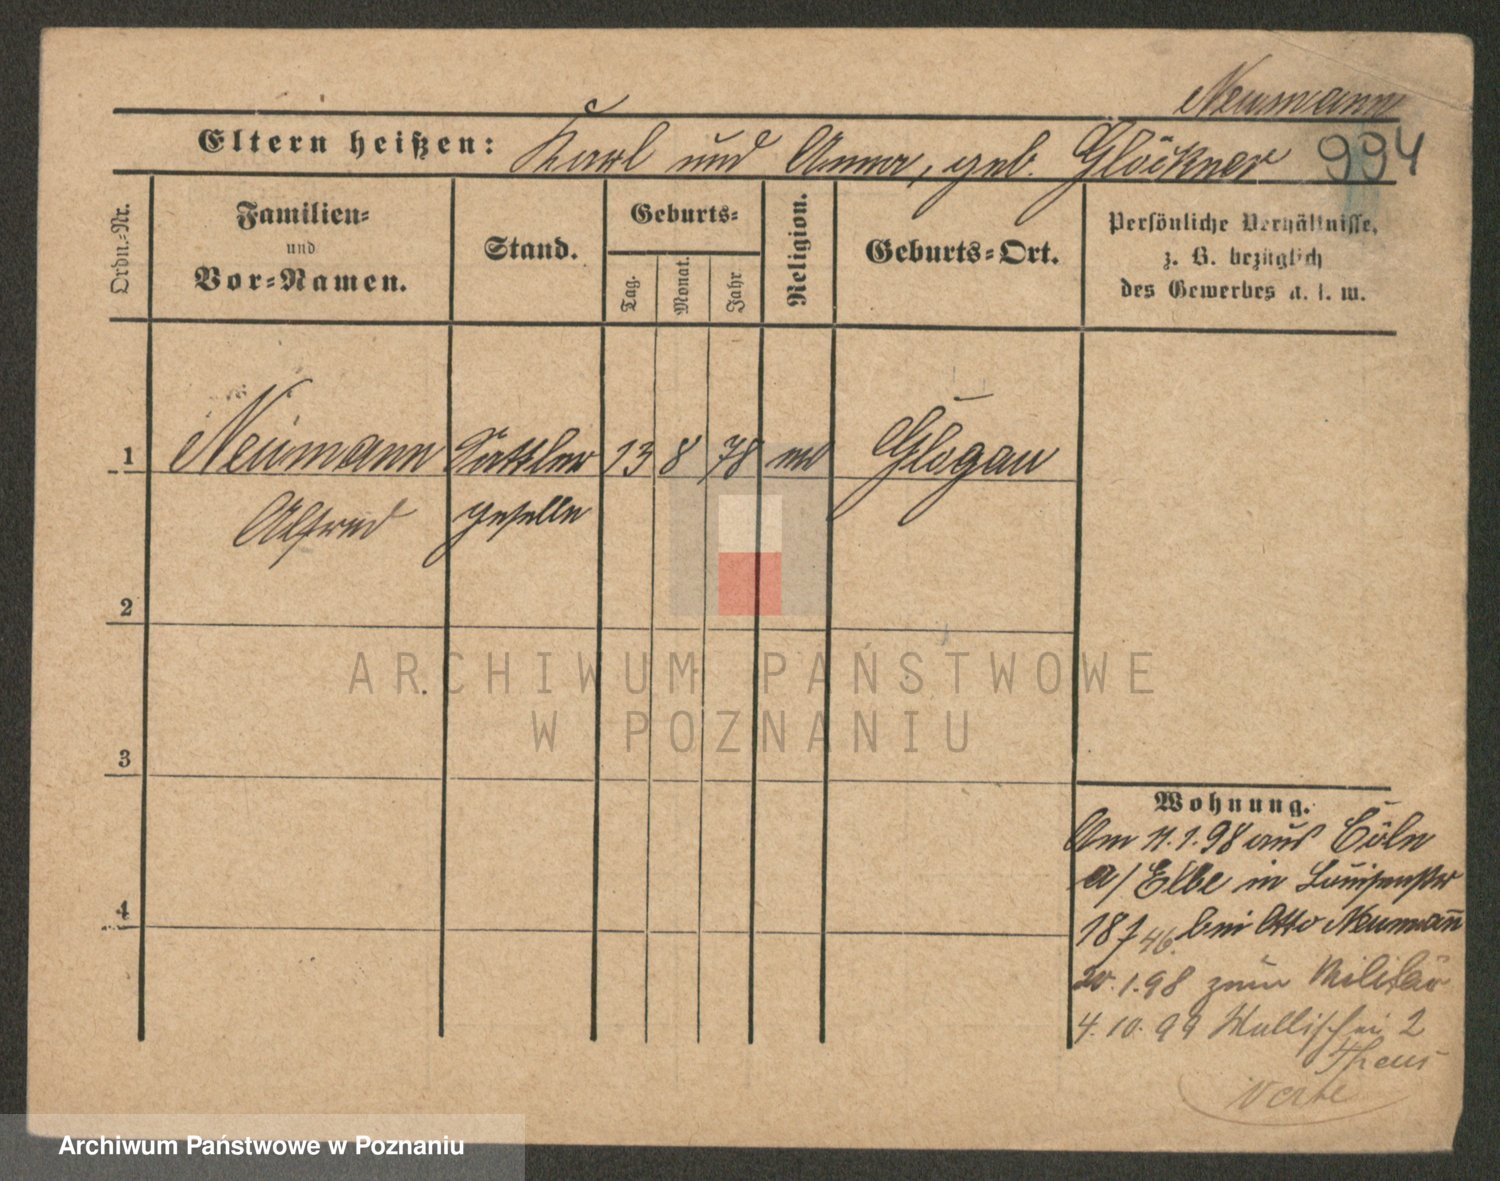 Neumann
Eltern heißen: Karl und Anna, geb. Glöckner 994
Ordn.-Nr.
Familien-
und
Vor-Namen.
Stand.
Geburts-
Tag.
Monat.
Jahr
Religion.
Geburts-Ort.
Persönliche Verhältnisse,
z. B. bezüglich
des Gewerbes u. s. w.
1 Neumann Sattler 13 8 78 ev Glogau
Alfred geselle
2
3
4
Wohnung.
Am 11.1.98 aus Cöln
a/Elbe in Louisenstr
18 bei Otto Neumann
20.1.98 zum Militär
4.10.99 Wallischei 2
Theus
verte
ARCHIWUM PAŃSTWOWE
W POZNANIU
Archiwum Państwowe w Poznaniu